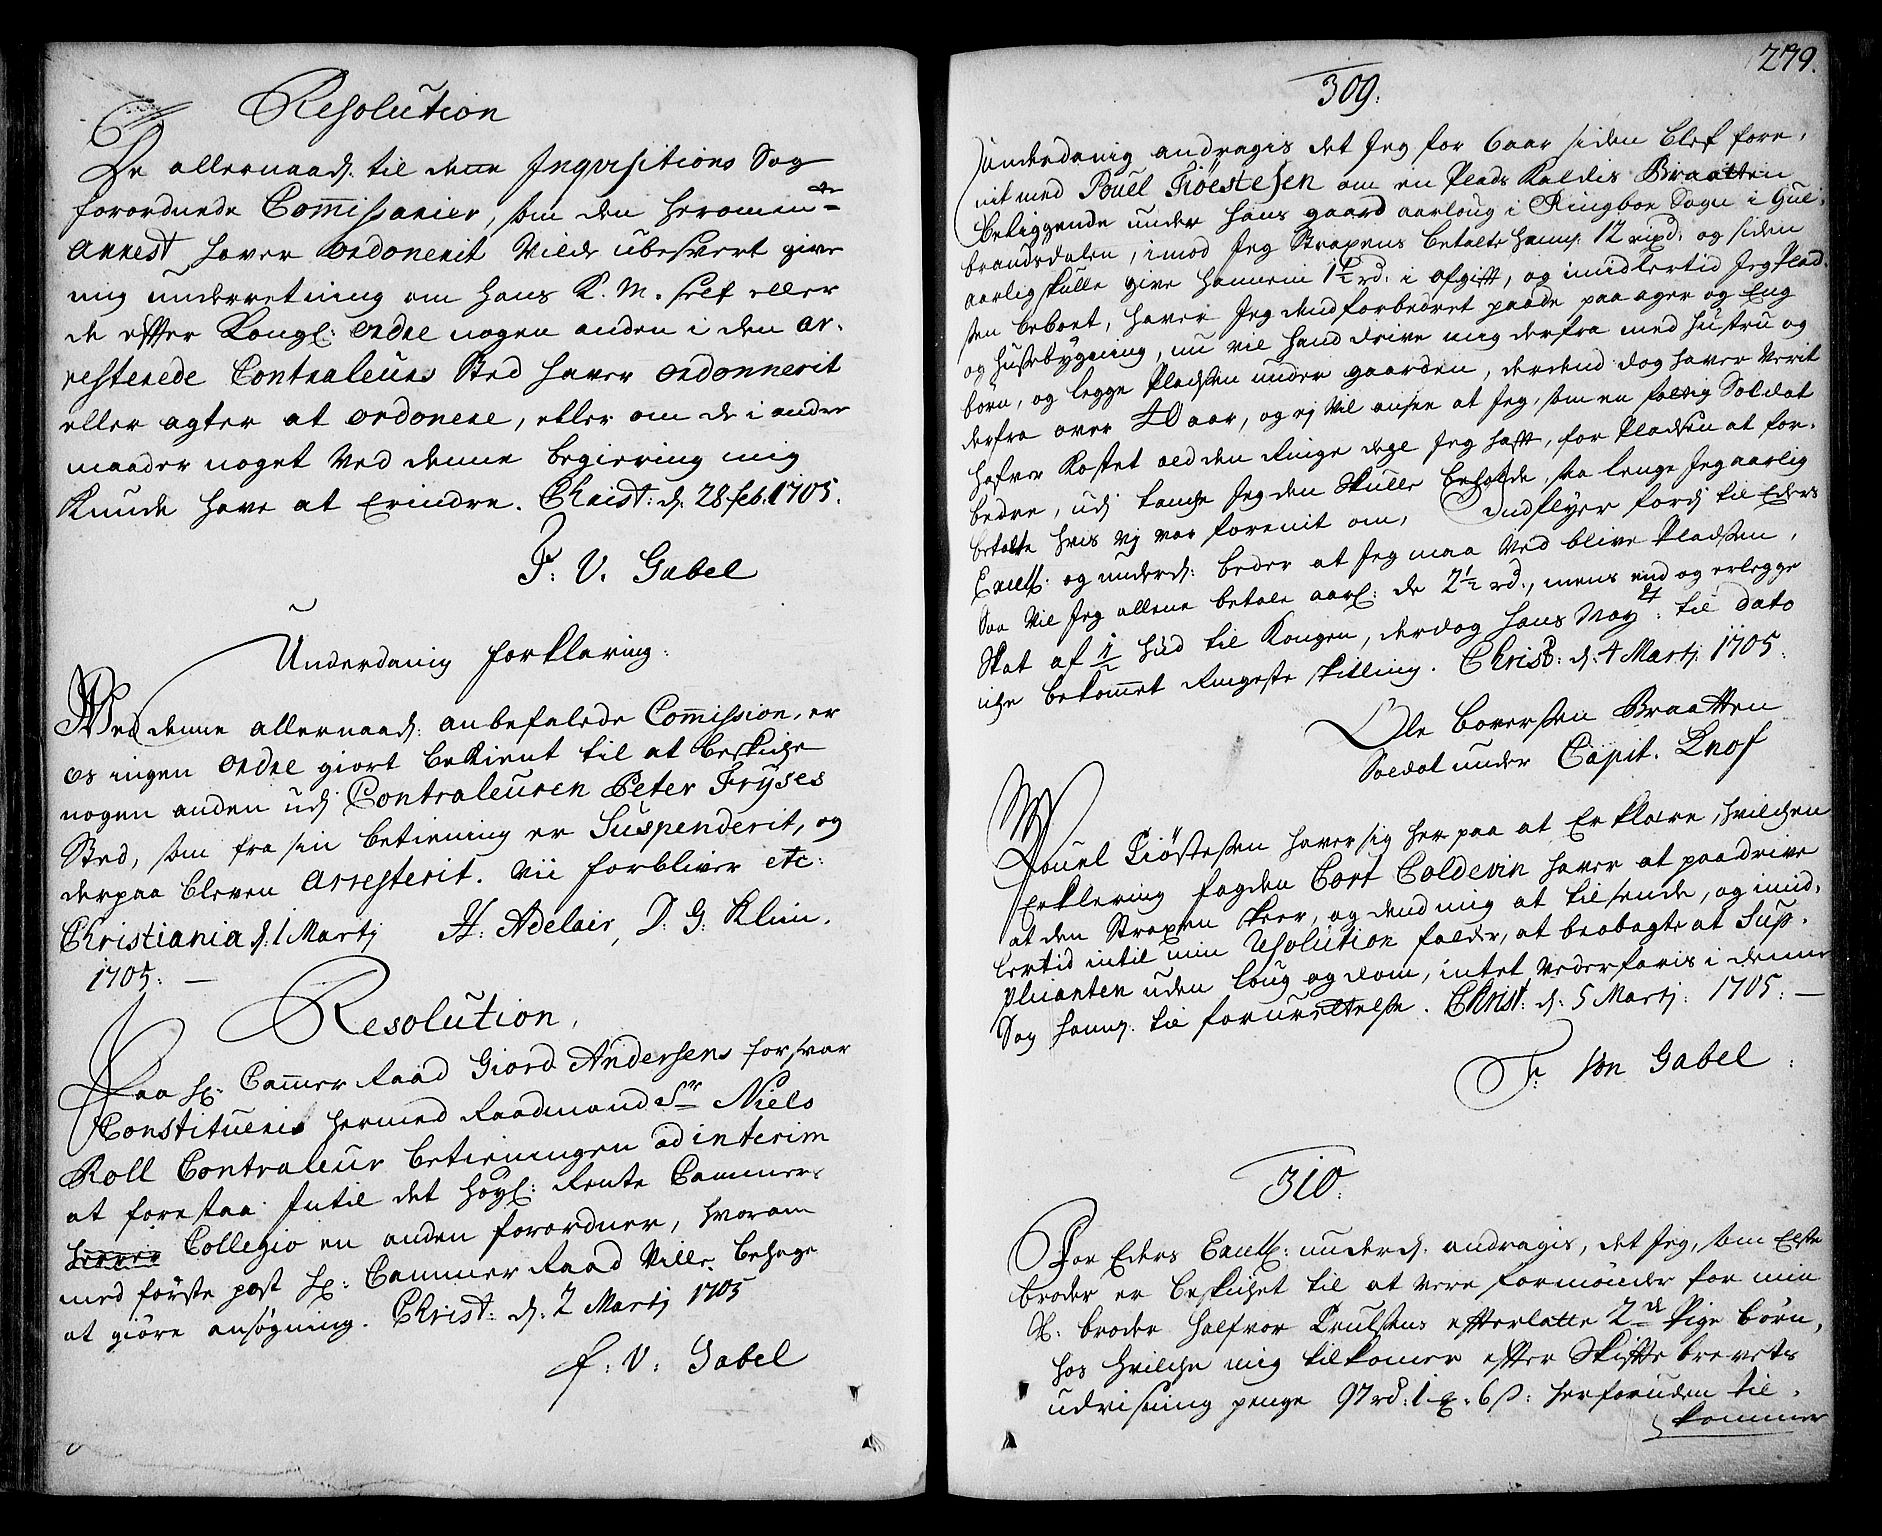 Resolution
De allernaad: til denne Inqvisitions Sag
forordnede Commissarier, som den heromen-
Arrest haver ordonerit Vilde ubesvert give
mig underretning om hans K. M. self eller
de effter Kongl: ordre nogen anden i den ar-
resterede Contraleurs Sted haver ordonnerit
eller agter at ordonere, eller om de i andre
maader noget Ved denne begiering mig
Kunde have at Erindre. Christ: d: 28 feb. 1705.
F. V. Gabel
Underdanig forklaring:
Ved denne allernaad: anbefalede Commission, er
os ingen ordre giort bekient til at beskiche
nogen anden udj Contraleuren Peter Fryses
Sted, som fra sin betiening er Suspenderit, og
derpaa bleven Arresterit. Vii forbliver etc:
Christiania d: 1 Martj H. Adelair, D. G. Klim.
1705. —
Resolution,
Paa H: Cammer Raad Giord Andersens forsvar
Constitueris hermed Raadmand Sr Niels
Roll Contraleur betieningen ad interim
at forestaa Intil det höyl: Rente Cammers
Collegio en anden forordner, hvorom
med förste post H: Cammer Raad Ville behage
at giöre ansøgning. Christ: d: 2 Martj 1705
F. V. Gabel
279.
309.
Underdanig andragis det Jeg for 6 aar siden blef fore-
nit med Pouel Tiöstesen om en Plads Kaldis Braatten
beliggende under hans gaard aarloug i Ringboe Sogn i Gul-
brandsdalen, imod Jeg Straxens betalte ham 12 rixd: og siden
aarlig skulle give hannem 1½ rd: i afgifft, og imidlertid Jeg Plad-
sen beboet, haver Jeg dend forbedret paade paa ager og Eng
og hussebygning, nu vil hand drive mig derfra med hustru og
børn, og legge Pladsen under gaarden, derdend dog haver Verit
derfra over 40 aar, og ej Vil ansee at Jeg, som en fattig Soldat
hafver Kostet ald den Ringe deel Jeg hafft, for Pladsen at for-
bedre, udj tanche Jeg den Skulle beholde, saa lenge Jeg aarlig
betalte hvis vj var forenit om, Indflyer fordj til Eders
Excell: og underd: beder at Jeg maa Ved blive Pladsen,
Saa Vil Jeg allene betale aarl: de 2½ rd., mens end og erlegge
Skat af ½ hud til Kongen, derdog hans May: til dato
iche bekommet Ringeste skilling. Christ: d: 4 Martj 1705.
Ole Boversen Braatten
Soldat under Capit. Knof
Pouel Tiöstesen haver sig her paa at Erklære, hvilchen
Erklering fogden Cort Coldevin haver at paadrive
at den Straxen skeer, og dend mig at tilsende, og imid-
lertid intil min Resolution falder, at beobagte at Sup-
plicanten uden loug og dom, intet Vederfaris i denne
Sag hannem til forurettelse. Christ: d: 5 Martj: 1705. —
F: von Gabel
310.
For Eders Excell: underd: andragis, det Jeg, som Elste
broder er beskichet til at vere formönder for min
S: broder Halfvor Truelsens efterlatte 2de Pige børn,
hos hvilche mig tilkomer effter Skiffte brevets
udvisning penge 97 rd: 1 X. 6 s: herforuden til-
kommer